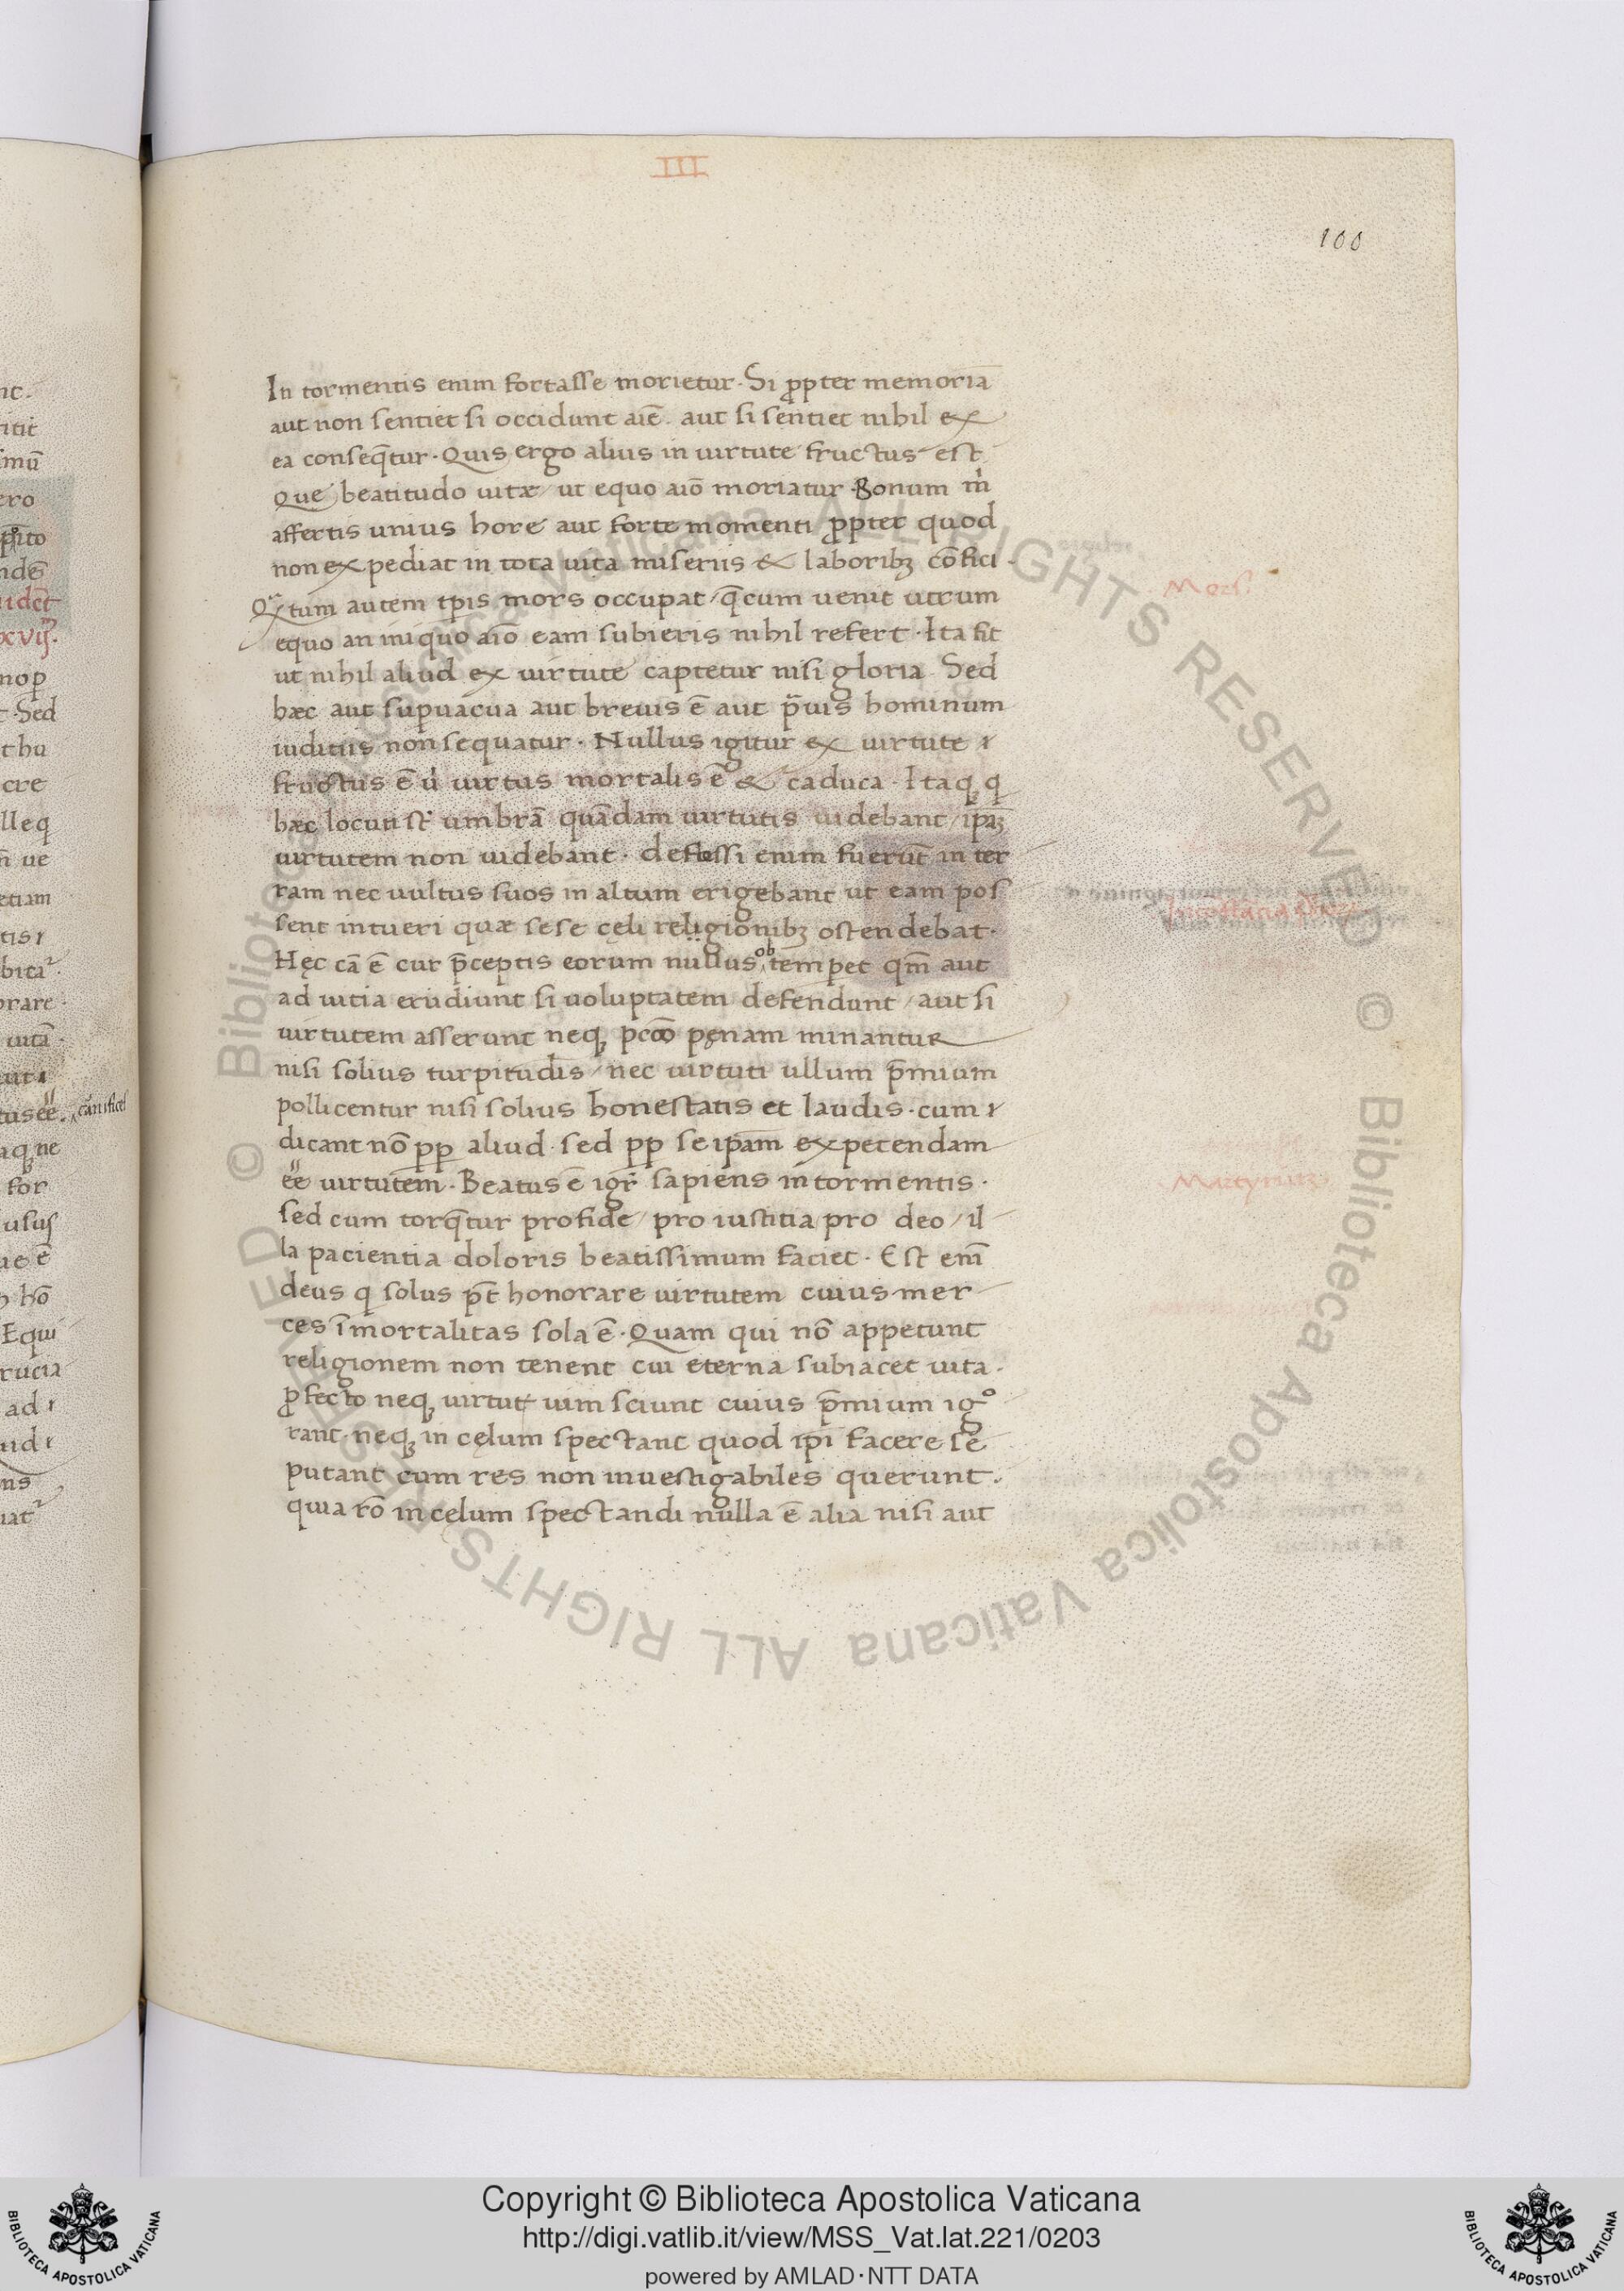 III
100
In tormentis enim fortasse morietur. Si ꝓpter memoriā
aut non sentiet si occidunt aīe. aut si sentiet nihil ex
ea conseq̄tur. Quis ergo alius in uirtute fructus est
Que beatitudo uitæ / ut equo aīo moriatur. Bonum m̍
affertis unius hore aut forte momenti ꝓpter quod
non expediat in tota uita miseriis & laboribꝫ cōfici.
Qͣ̄tum autem tp̄is mors occupat / q̄ cum uenit utrum
equo an iniquo aīo eam subieris nihil refert. Ita fit
ut nihil aliud ex uirtute captetur nisi gloria Sed
hæc aut suꝑuacua aut breuis ē aut pͣuis hominum
iuditiis non sequatur. Nullus igitur ex uirtute
fructus ē u̍ uirtus mortalis ē & caduca. Itaqꝫ q
hæc locuti st̄ umbrā quādam uirtutis uidebant / ip̄aꝫ
uirtutem non uidebant. deflessi enim fuerūt in ter
ram nec uultus suos in altum erigebant ut eam pos
sent intueri quæ sese cęli religionibꝫ ostendebat.
Hęc cā ē cur p̄ceptis eorum nullus obtemperet qm̄ aut
ad uitia erudiunt si uoluptatem defendunt / aut si
uirtutem asserunt neqꝫ pcc̄o pęnam minantur
nisi solius turpitudis / nec uirtuti ullum p̄mium
pollicentur nisi solius honestatis et laudis. cum
dicant nō ꝓp aliud. sed ꝓp se ip̄am expetendam
ēe uirtutem. Beatus ē igr̄ sapiens in tormentis.
sed cum torq̄tur pro fide / pro iustitia / pro deo / il
la pacientia doloris beatissimum faciet. Est enī
deus q solus pt̄ honorare uirtutem cuius mer
ces īmortalitas sola ē. Quam qui nō appetunt
religionem non tenent cui eterna subiacet uita.
ꝓfecto neqꝫ uirtut uim sciunt cuius p̄mium igº
rant. neqꝫ in cęlum spectant quod ip̄i facere se
putant cum res non inuestigabiles querunt.
quia rō in celum spectandi nulla ē alia nisi aut
Mors.
Martyriuꝫ
Copyright © Biblioteca Apostolica Vaticana
http://digi.vatlib.it/view/MSS_Vat.lat.221/0203
powered by AMLAD·NTT DATA
BIBLIOTECA APOSTOLICA VATICANA
BIBLIOTECA APOSTOLICA VATICANA
© Biblioteca Apostolica Vaticana ALL RIGHTS RESERVED © Biblioteca Apostolica Vaticana ALL RIGHTS RESERVED